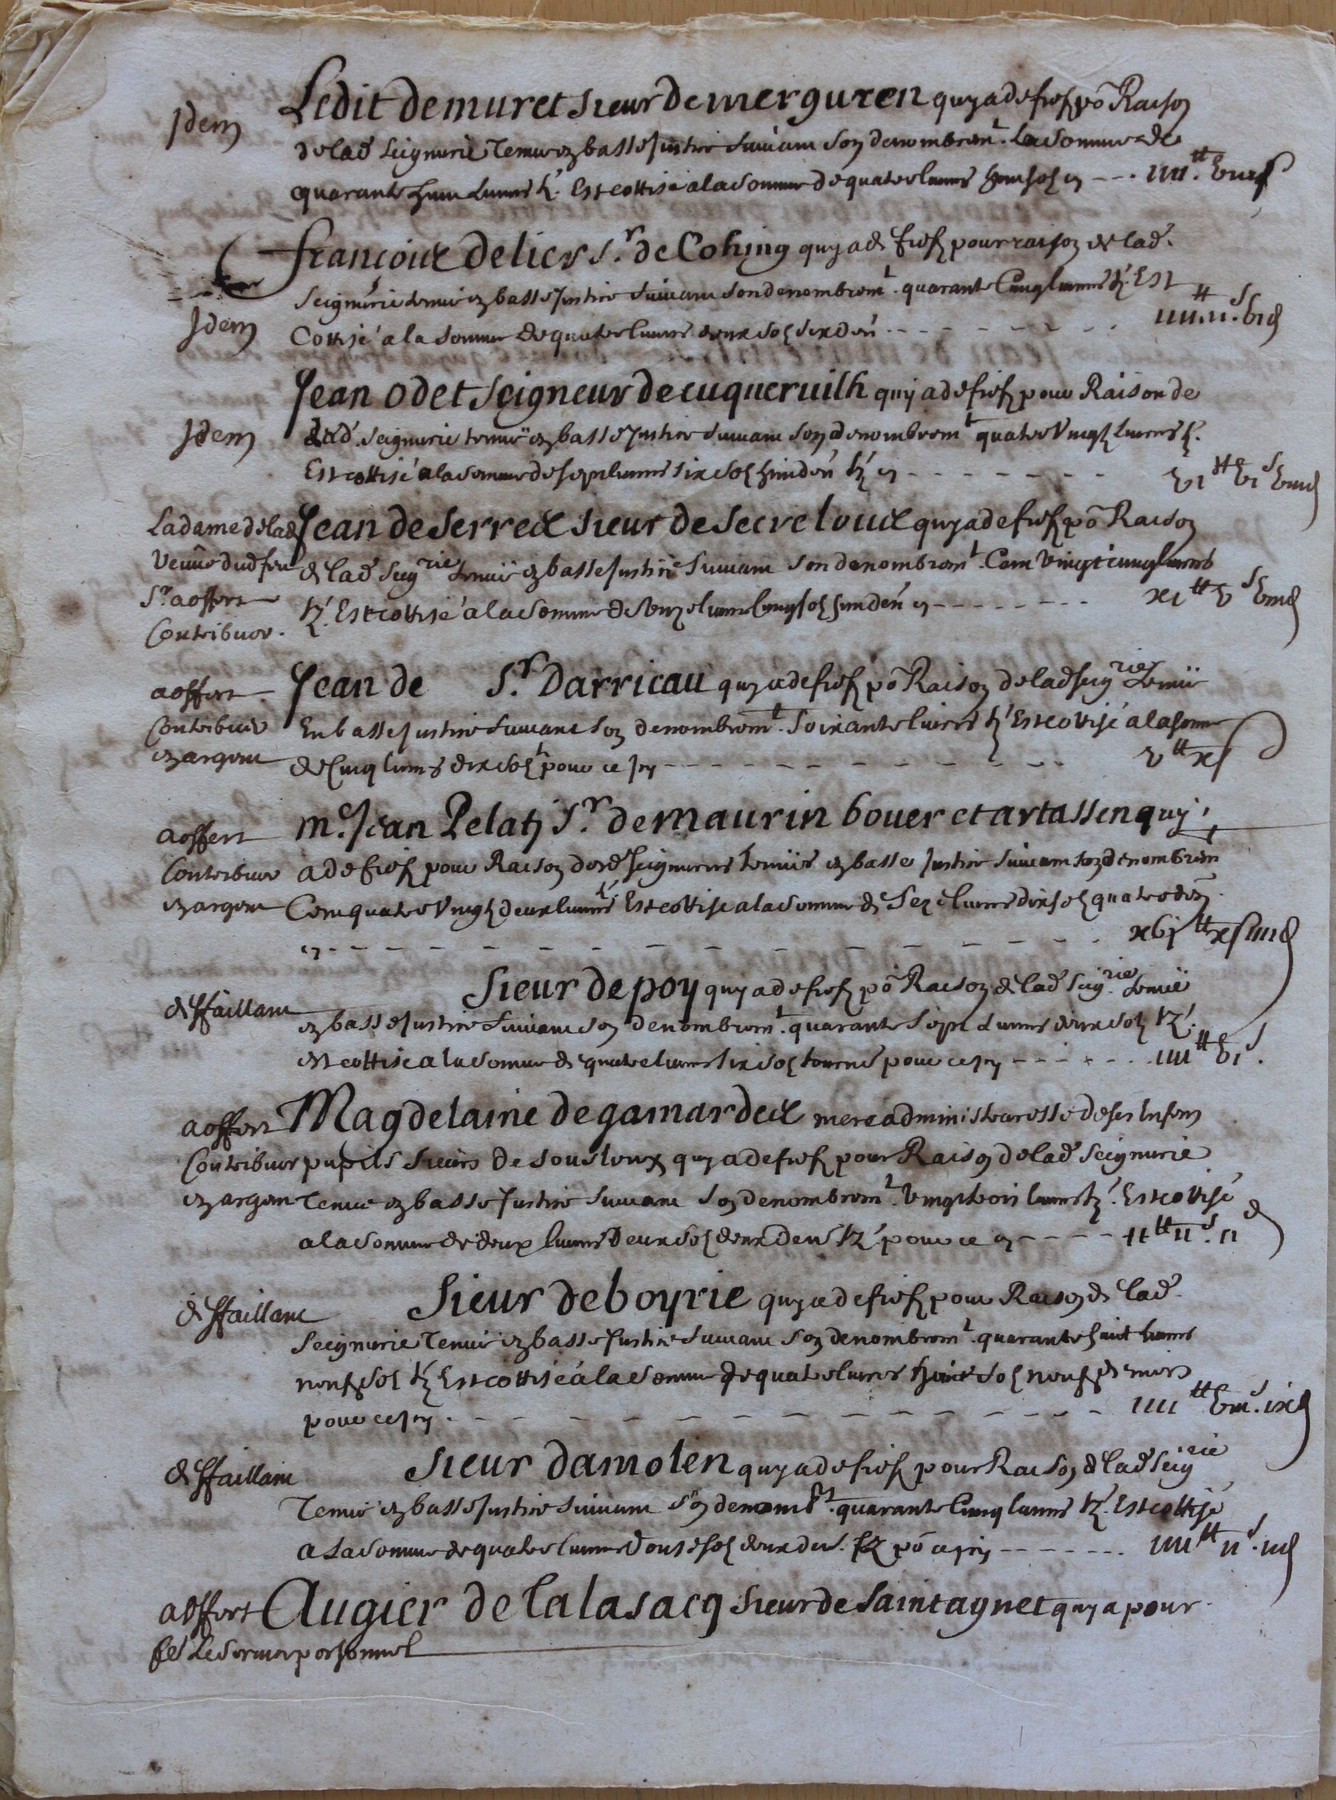 Idem
Ledit de muret sieur de merguren quy a de fief po Raison
de lad seigneurie Tenue en basse Justice suivant son denombremt. La somme de
quarante huict livres tz. Est cottisé a la somme de quatre livres huict solz cy --- IIII tt. VIII s
françoix de lier Sr. de Cohing quy a de fief pour raison de lad.
Seigneurie tenue en basse Justice suivant son denombremt. quarante Cinq livres tz. Est
Idem
Cottisé a la somme de quatre livres deux solz six den --- IIII tt. II s. VI d
Jean odet Seigneur de cuqueruilh quy a de fief pour Raison de
Idem
lad. seigneurie tenue en basse Justice suivant son denombremt quatre Vingtz livres tz.
Est cottisé a la somme de sept livres six solz huict den tz cy --- VI s VIII d
La dame de lad
Veuve dud feu
Sr. a offert
Contribuer.
Jean de Serrecx sieur de Secreloucx quy a de fief po Raison
de lad Seigrie tenue en basse Justice suivant son denombremt. Cent Vingt cinq livres
tz. Est cottisé a la somme de Unze livres cinq solz huict den cy --- XI tt V s VIII d
a offert
Contribuer
en argent
Jean de Sr. Darricau quy a de fief po Raison de lad seigrie tenue
En basse Justice suivant son denombremt. soixante livres tz Est cotisé a la somme
de Cinq livres dix solz pour ce cy --- V tt X s
a offert
Contribuer
en argent
me. Jean Pelatz Sr. de maurin bouer et artassen quy
a de fief pour Raison desd seigneuries tenues en basse Justice suivant son denombremt
Cent quatre Vingtz deux livres tz Est cottisé a la somme de Seze livres dix solz quatre den.
cy --- XVI tt X s IIII d
deffaillant
Sieur de poy quy a de fief po Raison de lad seigrie. tenue
en basse Justice suivant son denombremt. quarante sept livres deux solz tz.
est cottisé a la somme de quatre livres six solz tournois pour ce cy --- IIII tt VI s.
a offert
Contribuer
en argent
Magdelaine de gamardecx mere administraresse de ses enfens
pupils sieurs de Sousloux quy a de fief pour Raison de lad seigneurie
Tenue en basse Justice suivant son denombremt. Vingt trois livres tz. Est cotisé
a la somme de deux livres deux solz deux den tz pour ce cy --- II tt II s. II d
deffaillant
Sieur de boyrie quy a de fief pour Raison de lad.
Seigneurie Tenue en basse Justice suivant son denombremt. quarante huict livres
neuf solz tz Est cottisé a la somme de quatre livres huict solz neuf deniers
pour ce cy --- IIII tt VIII s. IX d
deffaillant
Sieur damolen quy a de fief pour Raison de lad Seigrie
Tenue en basse Justice suivant son denombt. quarante Cinq livres tz. Est cottisé
a la somme de quatre livres deux den. tz po ce cy --- IIII tt II s. II d
a offert
Le servir personnel
Augier de lalasacq Sieur de Saint agnet quy a pour